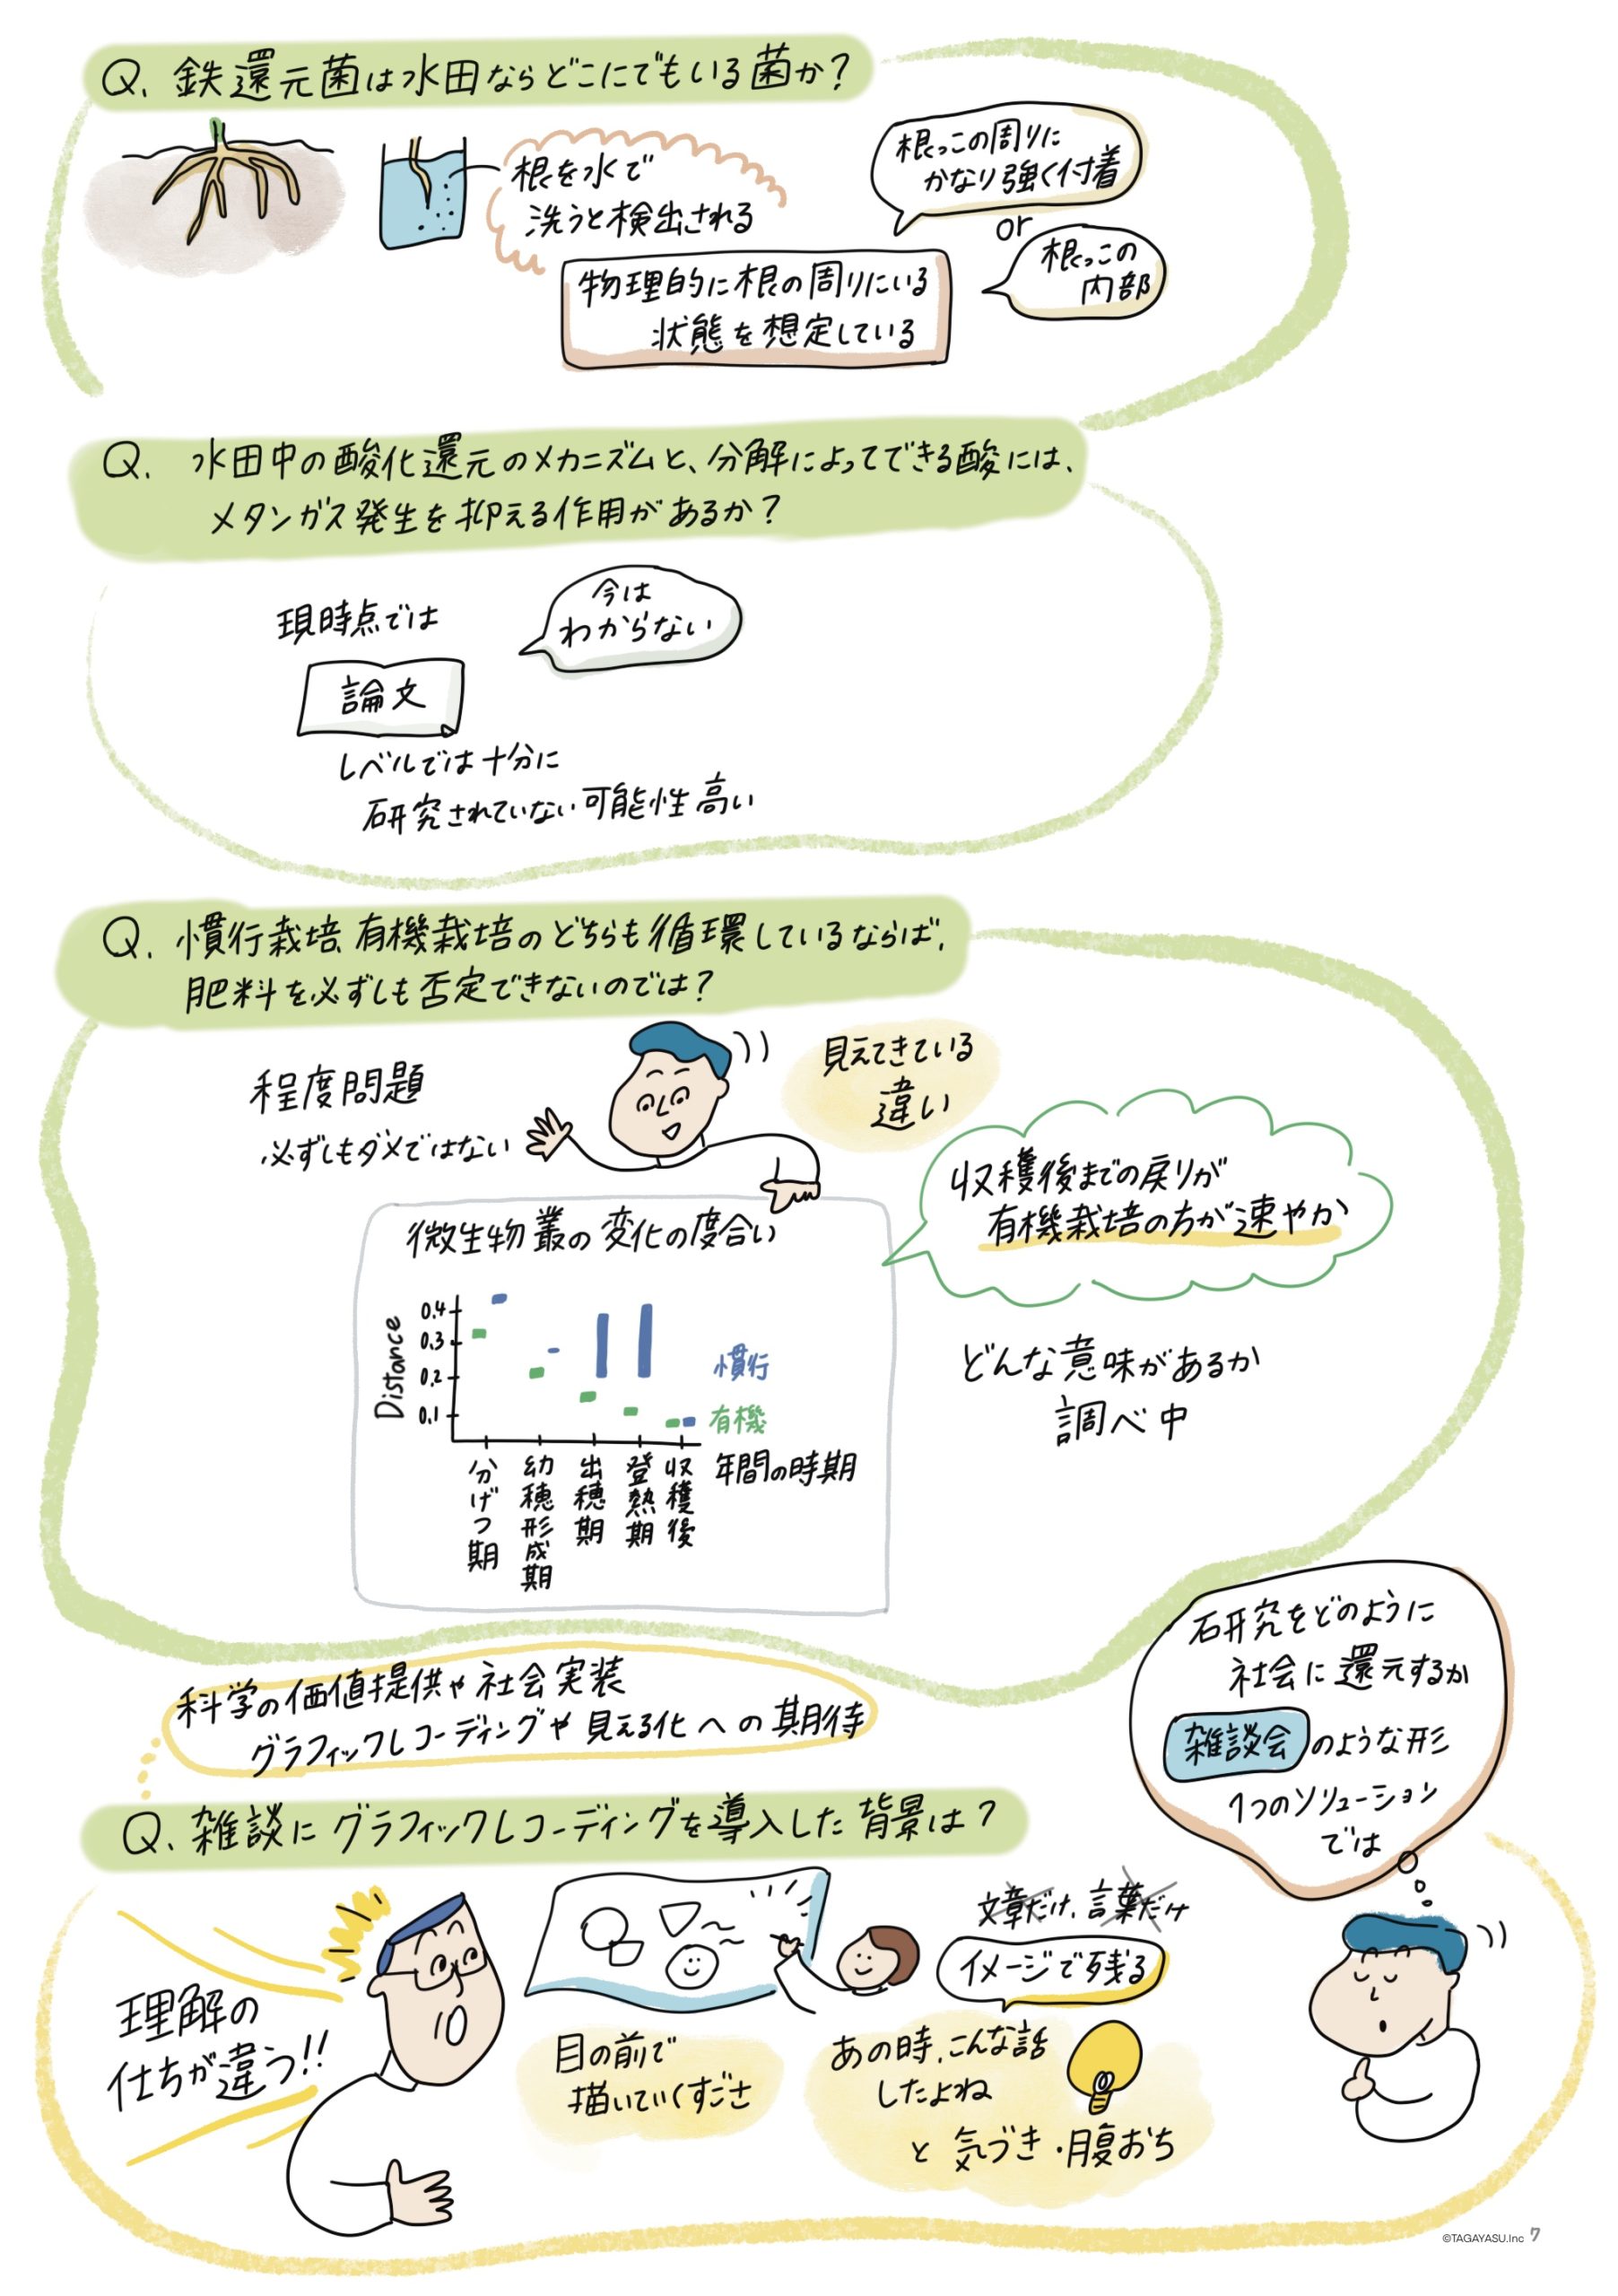 Q. 鉄還元菌は水田ならどこにでもいる菌か？
根を水で
洗うと検出される
根っこの周りに
かなり強く付着
or
根っこの
内部
物理的に根の周りにいる
状態を想定している
Q. 水田中の酸化還元のメカニズムと、分解によってできる酸には、
メタンガス発生を抑える作用があるか？
現時点では
論文
レベルでは十分に
研究されていない可能性高い
今は
わからない
Q. 慣行栽培、有機栽培のどちらも循環しているならば、
肥料を必ずしも否定できないのでは？
程度問題
必ずしもダメではない
見えてきている
違い
収穫後までの戻りが
有機栽培の方が速やか
どんな意味があるか
調べ中
微生物叢の変化の度合い
Distance
0.4
0.3
0.2
0.1
慣行
有機
分げつ期
幼穂形成期
出穂期
登熱期
収穫後
年間の時期
科学の価値提供や社会実装
グラフィックレコーディングや見える化への期待
Q. 雑談にグラフィックレコーディングを導入した背景は？
研究をどのように
社会に還元するか
雑談会のような形
1つのソリューション
では
理解の
仕ちが違う!!
目の前で
描いていくすごさ
文章だけ、言葉だけ
イメージで残る
あの時、こんな話
したよね
と気づき・腹おち
©TAGAYASU.Inc 7